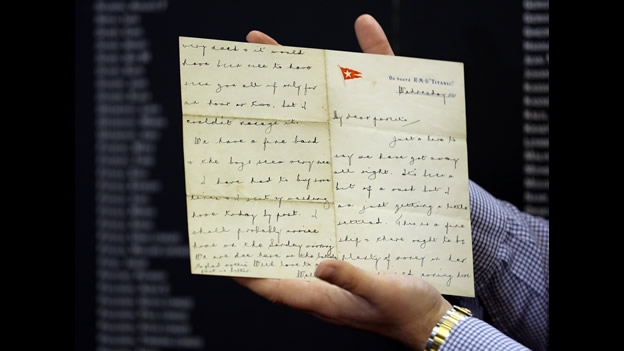 On board R.M.S. "TITANIC".
Wednesday, 191
My dear parents,
Just a line to
say we have got away
all right. It's been a
bit of a rush but I
am just getting a little
settled. This is a fine
ship & there ought to be
plenty of money on her
missed coming home
very much & it would
have been nice to have
seen you all if only for
an hour or two, but I
couldn't manage it.
We have a fine band
& the boys seem very nice
I have had to buy some
linen & I sent my washing
home today by post. I
shall probably arrive
home on the Sunday morning
We are due here on the
I'm glad mother's
foot is better. With love to